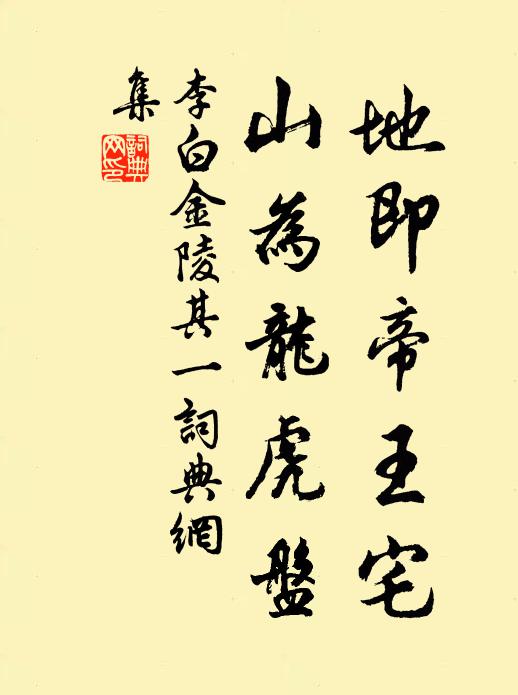 地即帝王宅
山為龍虎盤
李白金陵其一詞典網
集
詞典
網印